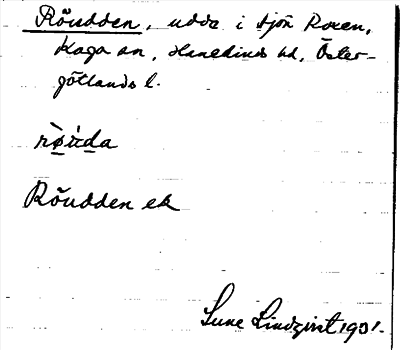 Röudden, udde i sjön Roxen,
Kaga sn, Hanekinds hd, Öster-
götlands l.
Röudden ek
Sune Lindqvist 1901.